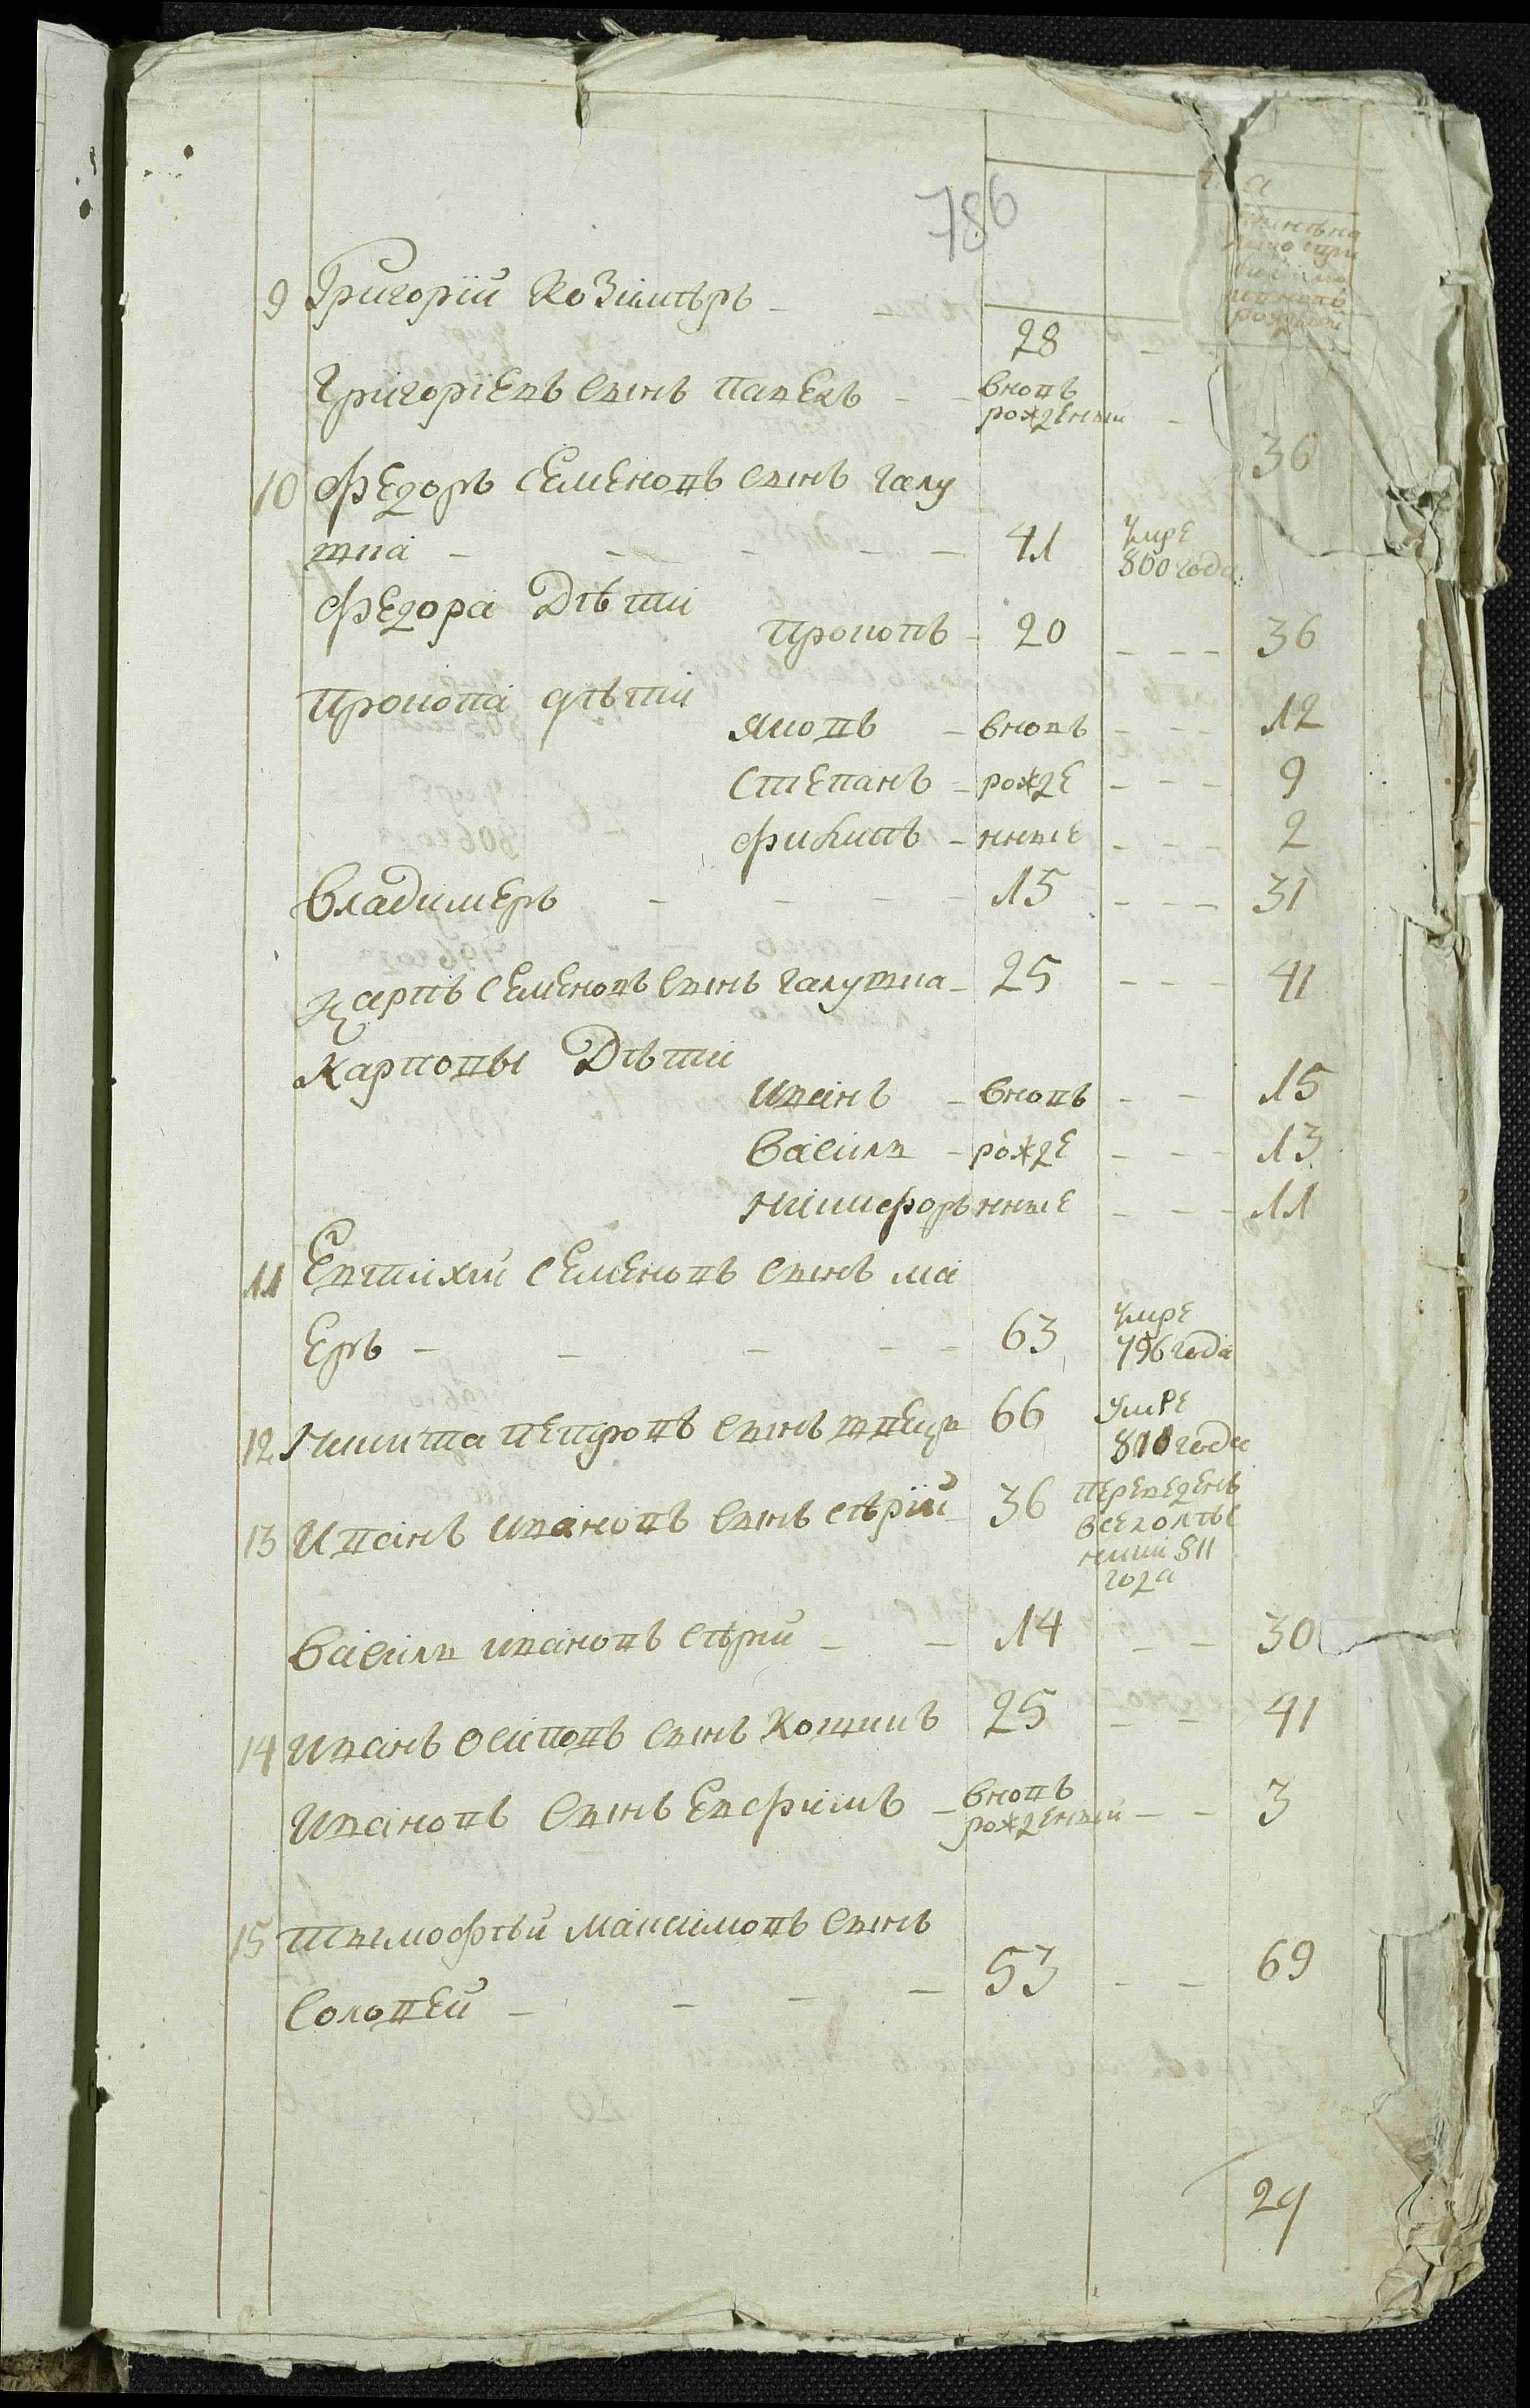 786
9 Григорій Козимѣръ - - 28 -
Григоріевъ сынъ павелъ - - вновь рожденныи -
36
10 Федоръ Семеновъ сынъ галу
тка - - - - - 41 умре 800 года
Федора Дѣти
Прокопъ - 20 - - - 36
Прокопа дѣти
Яковъ - вновь - - - 12
Степанъ - рожде - - - 9
Филипъ - нные - - - 2
Владимеръ - - - - 15 - - - 31
Карпъ Семеновъ сынъ галутка - 25 - - - 41
Карповы Дѣти
Иванъ - вновь - - 15
Василь - рожде - - - 13
Никифоръ нные - - - 11
11 Евтихій Семеновъ сынъ ма
еръ - - - - - 63 умре 796 года
12 Никита Петровъ сынъ 66 умре 810 года
13 Иванъ Ивановъ сынъ сѣрій 36 переведенъ 811 года
Василь ивановъ сѣрій - - 14 - - 30
14 Иванъ Осиповъ сынъ 25 - - 41
Ивановъ сынъ Ефимъ - вновь рожденный - - 3
15 Тимофѣй Максимовъ сынъ
Соловей - - - - 53 - - 69
29